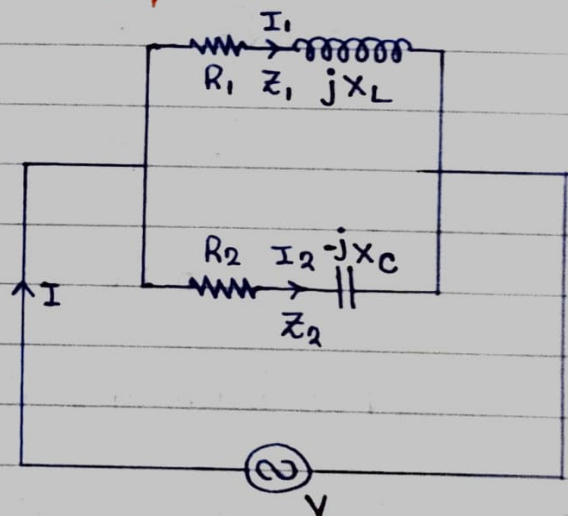 I₁
R₁ Z₁ jX_L
R₂ I₂ -jX_C
I
Z₂
V